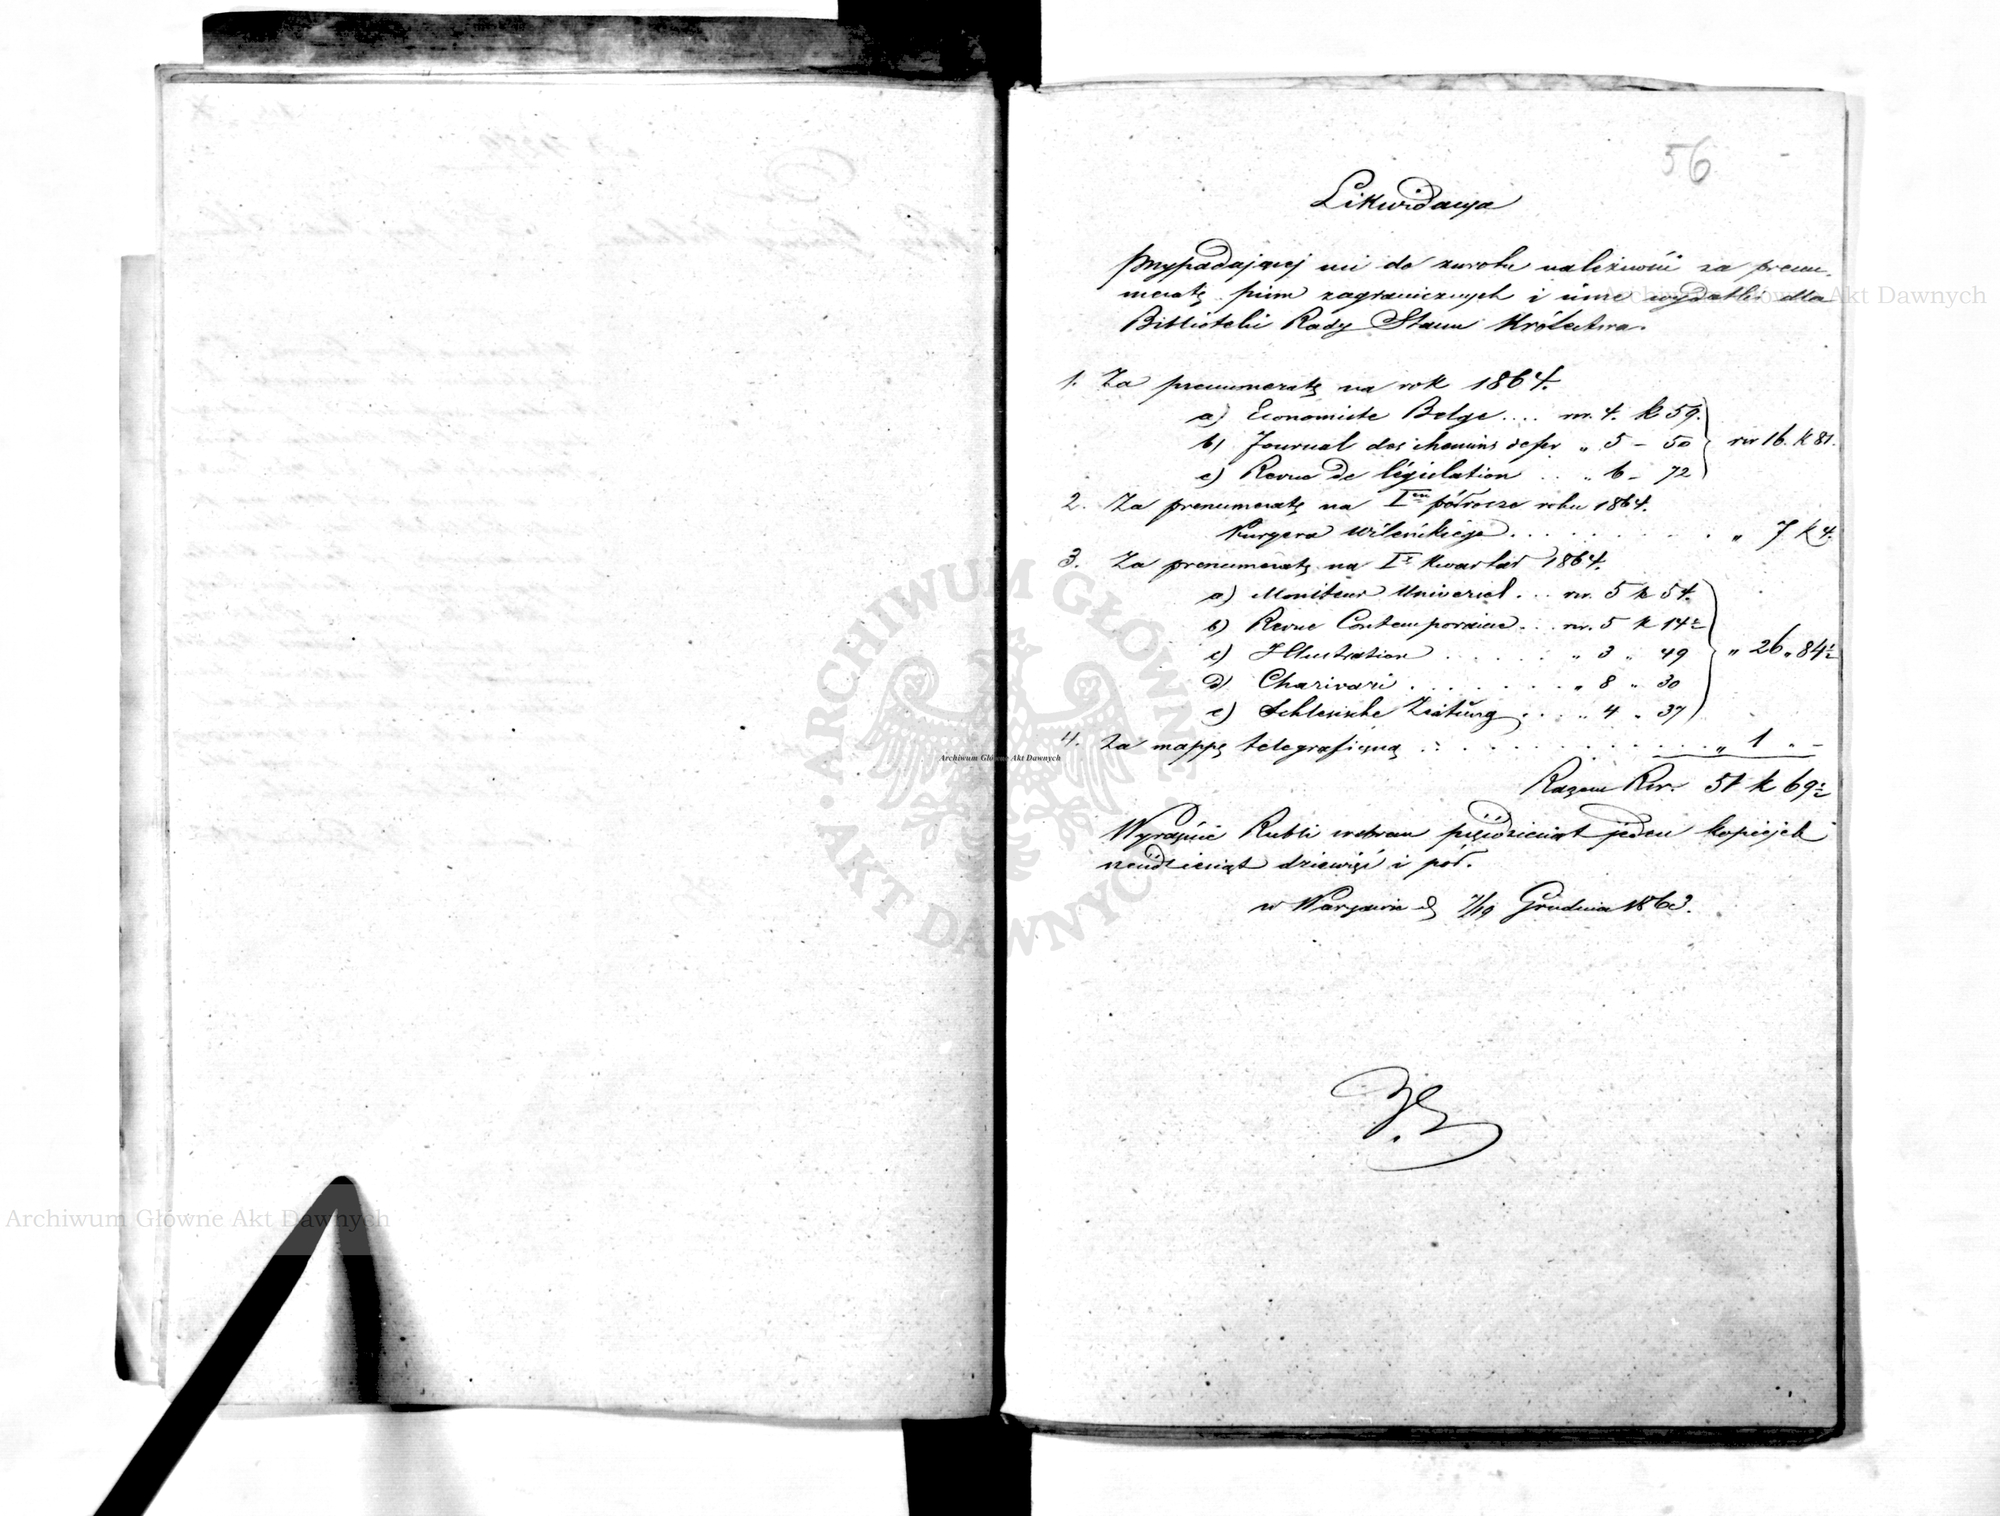 56
Likwidacya
Przypadającej mi do zwrotu należności za prenu-
meratę pism zagranicznych i inne wydatki dla
Biblioteki Rady Stanu Królestwa.
1. Za prenumeratę na rok 1864.
a) Economiste Belge .... rsr. 4. k 59.
b) Journal des chemins de fer " 5 – 50 rsr 16. k 81.
c) Revue de législation .. " 6 – 72
2. Za prenumeratę na I półrocze roku 1864.
Kuryera Wileńskiego . . . . . . . . " 7 k 4.
3. Za prenumeratę na I Kwartał 1864.
a) Moniteur Universel . .. rsr. 5 k 54.
b) Revue Contemporaine . . rsr. 5 k 14½
c) Illustration . . . . . " 3 " 49 " 26 " 84½
d) Charivari . . . . . . " 8 " 30
e) Schlesische Zeitung . . . " 4 " 37
4. Za mappę telegraficzną . . . . . . . . . . . . " 1 " –
Razem Rsr. 51 k 69½
Wyraźnie Rubli srebrem pięćdziesiąt jeden kopiejek
sześćdziesiąt dziewięć i pół.
w Warszawie d. 7/19 Grudnia 1863.
Archiwum Główne Akt Dawnych
ARCHIWUM GŁÓWNE
· AKT DAWNYCH ·
Archiwum Główne Akt Dawnych
Archiwum Główne Akt Dawnych